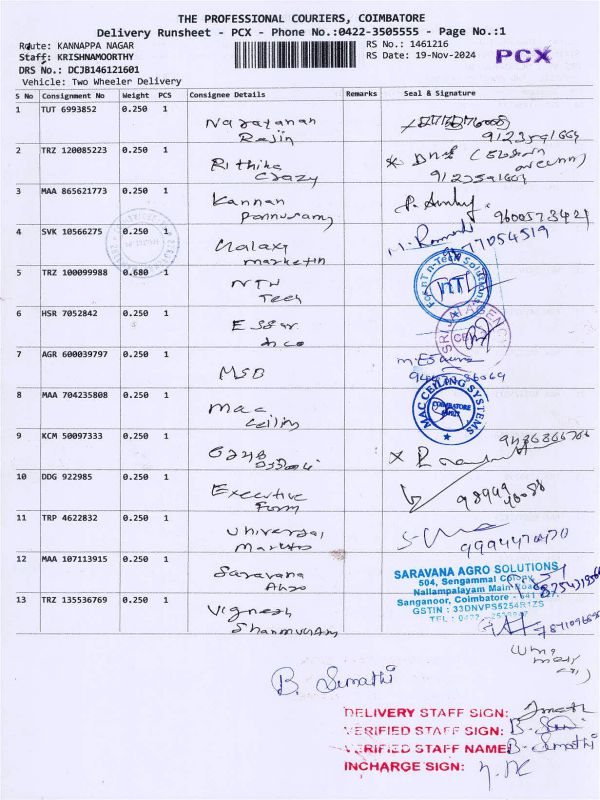 THE PROFESSIONAL COURIERS, COIMBATORE
Delivery Runsheet - PCX - Phone No.:0422-3505555 - Page No.:1
Route: KANNAPPA NAGAR
RS No.: 1461216
Staff: KRISHNAMOORTHY
RS Date: 19-Nov-2024
PCX
DRS No.: DCJB146121601
Vehicle: Two Wheeler Delivery
S No Consignment No Weight PCS Consignee Details Remarks Seal & Signature
1 TUT 6993852 0.250 1 Narayanan
Rajin
2 TRZ 120085223 0.250 1 Rithika
Crazy
3 MAA 865621773 0.250 1 Kannan
Ponnusamy 9600573421
4 SVK 10566275 0.250 1 Galaxy
marketin
5 TRZ 100099988 0.680 1 NTN
Tech
6 HSR 7052842 0.250 1 Essar
7 AGR 600039797 0.250 1 MSB
8 MAA 704235808 0.250 1 Mac
Ceilin
MAC CEILING SYSTEMS
COIMBATORE
9 KCM 50097333 0.250 1
10 DDG 922985 0.250 1 Executive
Form
11 TRP 4622832 0.250 1 Universal
9994470470
12 MAA 107113915 0.250 1 Saravana
Agro
SARAVANA AGRO SOLUTIONS
504, Sengammal Colony,
Nallampalayam Main Road,
Sanganoor, Coimbatore - 641
GSTIN : 33DNVPS5254R1ZS
TEL : 0422
13 TRZ 135536769 0.250 1 Vignesh
Shanmugam
B. Sumathi
DELIVERY STAFF SIGN:
VERIFIED STAFF SIGN:
VERIFIED STAFF NAME: B. Sumathi
INCHARGE SIGN: